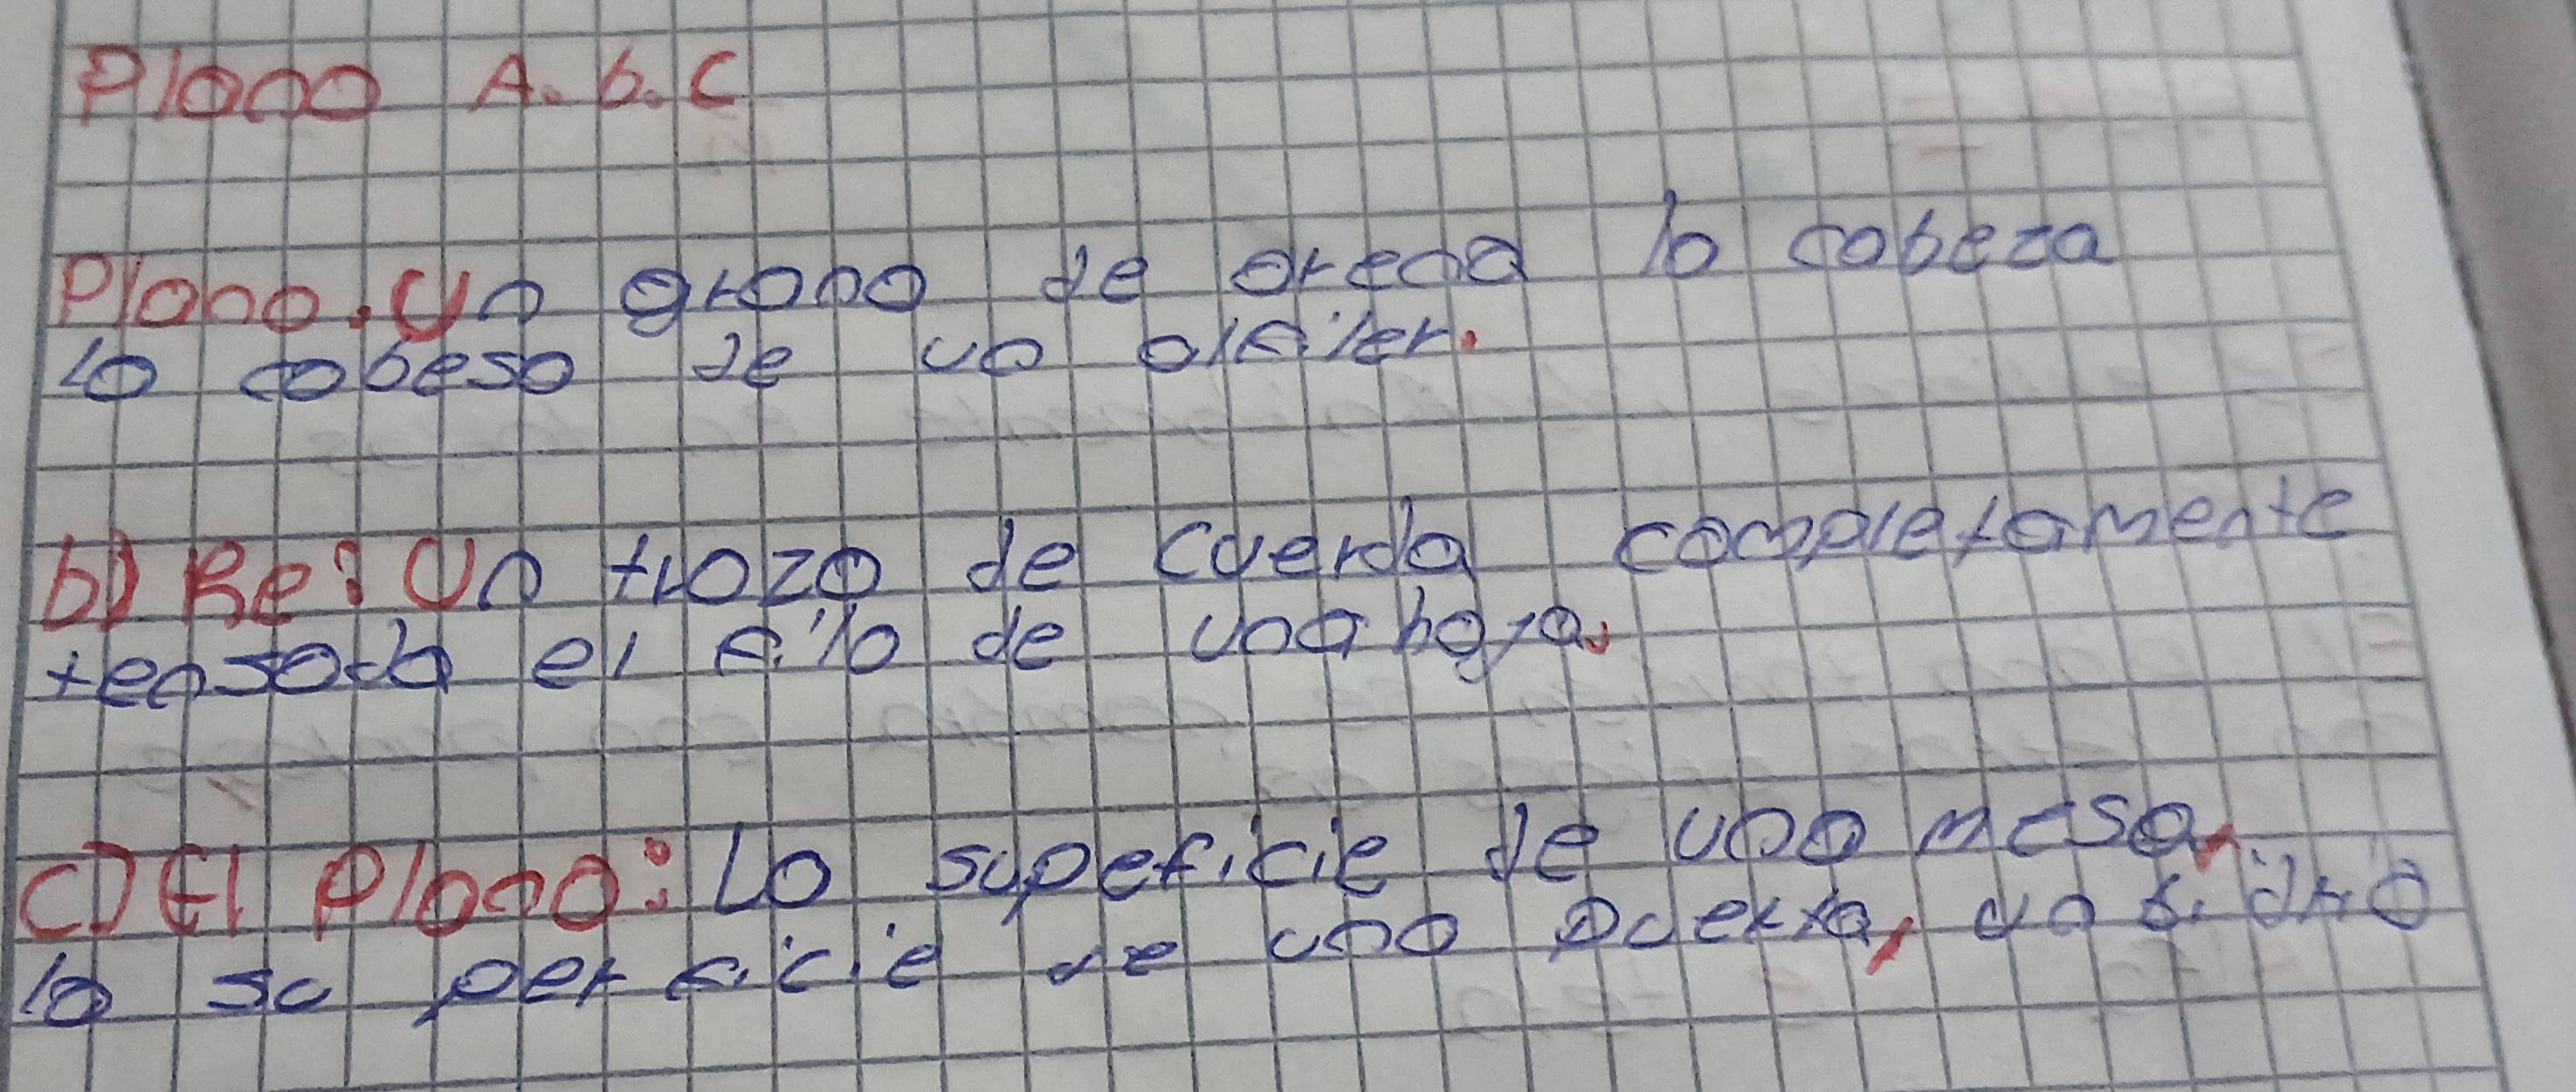 Plano A. b. C
Plano. Un grano de arena la cabeza
la cabesa de un alfiler.
b) Re: Un trozo de cuerda completamente
tensada el filo de una hoja.
C) El plano: La supeficie de una mesa,
la su perficie de una puerta, un bidrio